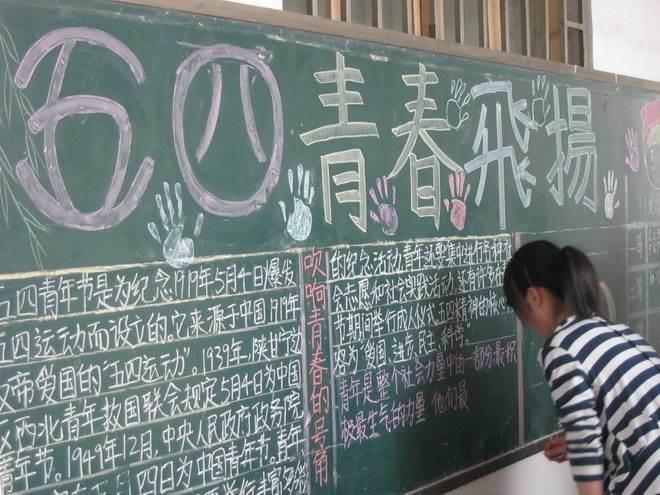 五四青春飛揚
五四青年节是为纪念1919年5月4日爆发
五四运动而设立的。它来源于中国1919年
反帝爱国的“五四运动”。1939年,陕甘宁边
区西北青年救国联会规定5月4日为中国
青年节。1949年12月,中央人民政府政务院
四日为中国青年节。
吹响青春的号角
的纪念活动,青年还要集中进行各种
会志愿和社会实践活动,还有许多
节期间举行成人仪式。五四精神的核心
容为“爱国、进步、民主、科学。”
青年是整个社会力量中的一部份最积
极最生气的力量 他们最